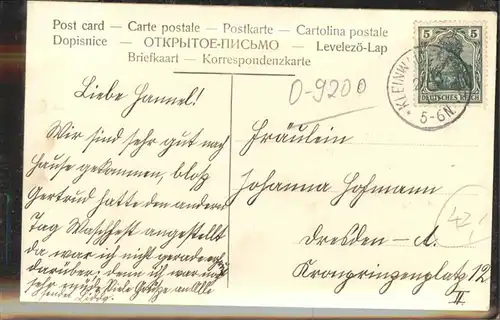 Post card — Carte postale — Postkarte — Cartolina postale
Dopisnice — ОТКРЫТОЕ-ПИСЬМО — Levelező-Lap
Briefkaart — Korrespondenzkarte
5 5
DEUTSCHES REICH
KLEINW
5-6N
0-9200
Liebe Hannel!
Wir sind sehr gut nach
Hause gekommen, bloß
Gertrud hatte den andern
Tag Waschfest angestellt
da war ich nicht gerade
darüber, denn ich war
sehr müde Viele Grüße an Alle
sendet
Fräulein
Johanna Hofmann
Dresden – A.
Kronprinzenplatz 12
II
42